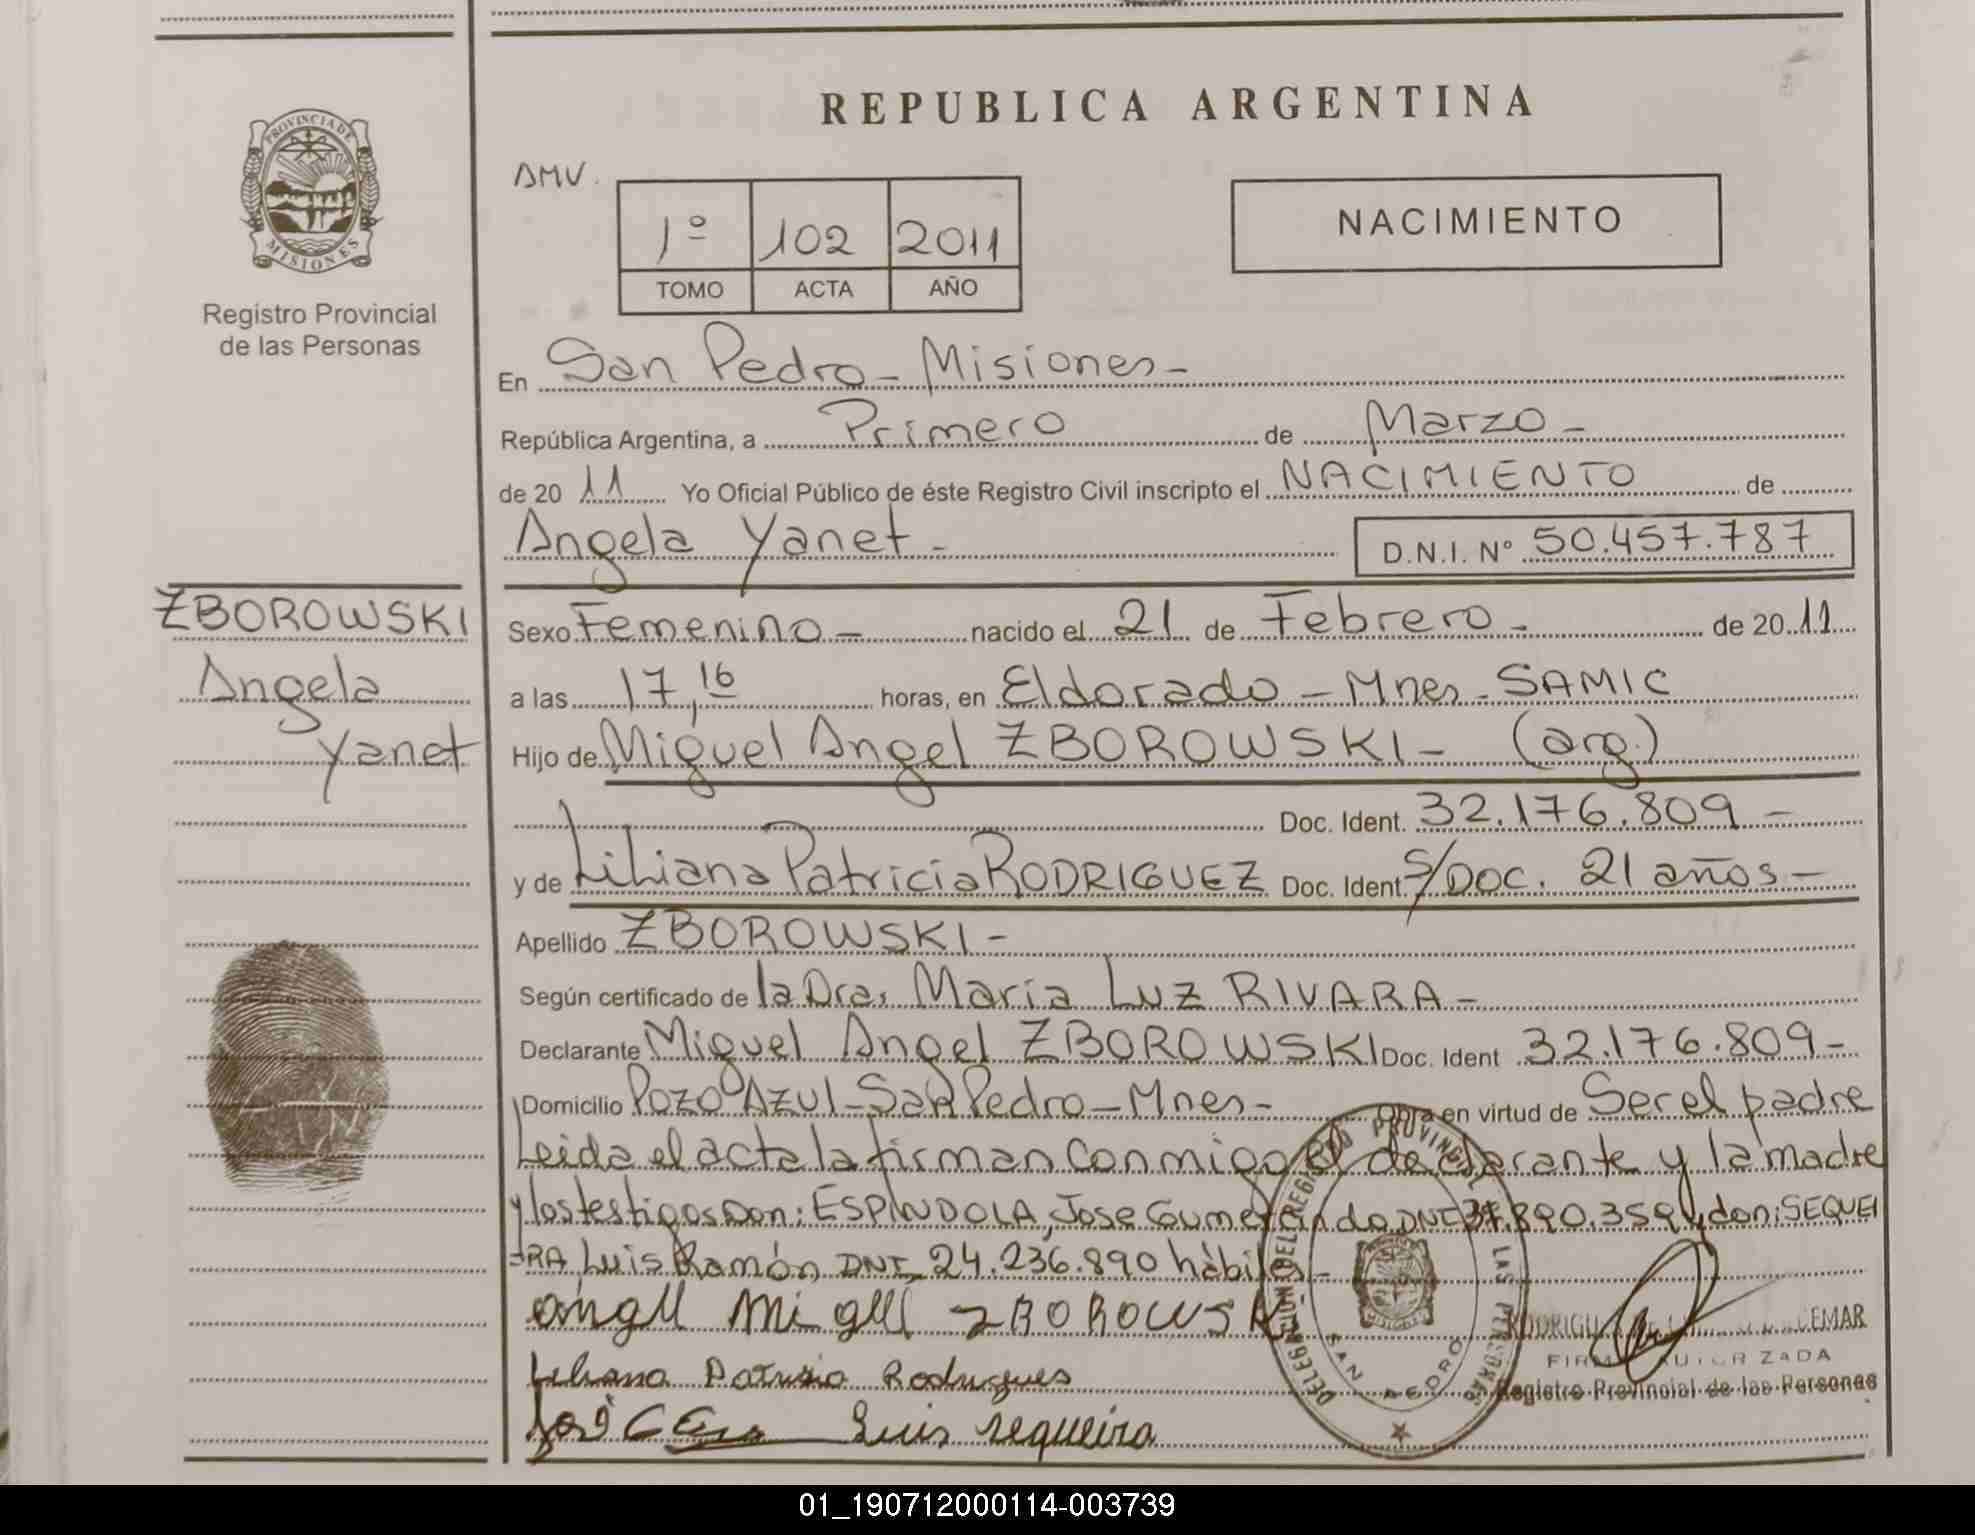 REPUBLICA ARGENTINA
PROVINCIA DE MISIONES
Registro Provincial
de las Personas
AMV.
1º 102 2011
TOMO ACTA AÑO
NACIMIENTO
En San Pedro - Misiones -
República Argentina, a Primero de Marzo -
de 20 11 Yo Oficial Público de éste Registro Civil inscripto el NACIMIENTO de
Angela Yanet - D.N.I. Nº 50.457.787
ZBOROWSKI
Angela
Yanet
Sexo Femenino - nacido el 21 de Febrero - de 20 11
a las 17,16 horas, en Eldorado - Mnes - SAMIC
Hijo de Miguel Angel ZBOROWSKI - (arg.)
Doc. Ident. 32.176.809 -
y de Liliana Patricia RODRIGUEZ Doc. Ident. S/DOC. 21 años -
Apellido ZBOROWSKI -
Según certificado de la Dra. María Luz RIVARA -
Declarante Miguel Angel ZBOROWSKI Doc. Ident 32.176.809 -
Domicilio Pozo Azul - San Pedro - Mnes - Obra en virtud de Ser el padre
Leida el acta la firman conmigo el declarante y la madre
y los testigos Don: ESPINDOLA, Jose Gumercindo DNI y don: SEQUEI
=RA, Luis Ramón DNI 24.236.890 hábiles -
angel Miguel ZBOROWSK
Liliana Patricia Rodrigues
José C
Luis sequeira
DELEGACION DEL REGISTRO PROVINCIAL LAS PERSONAS
SAN PEDRO
FIRMA AUTORIZADA
Registro Provincial de las Personas
01_190712000114-003739